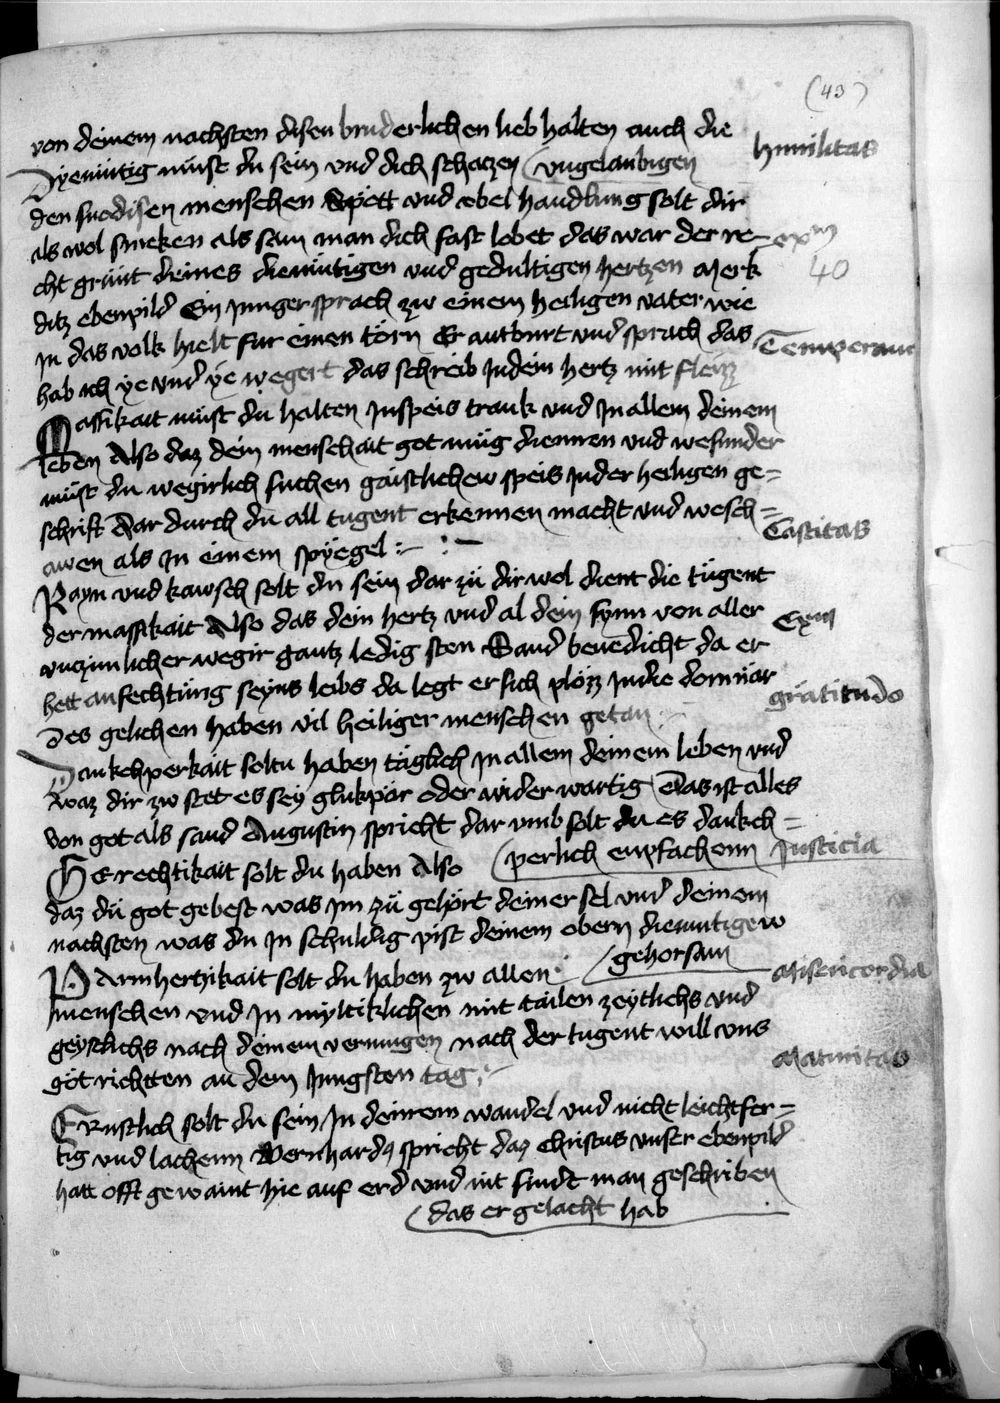 (43)
von deinem nachsten disen bruderlichen lieb halten auch die
humilitas
Dyemütig müst du sein vnd dich schaczen (vngelaubigen
den snodisen menschen Spott vnd vbel handlung solt dir
als wol smeken als sam man dich fast lobet das war der re-
exm
cht grünt deines diemütigen vnd gedultigen hertzen Merk
40
ditz ebenpild Ein Junger sprach zw einem heiligen vater wie
Jn das volk hielt fur einen törn Er antburt vnd sprach das
Temperanc
hab ich ye vnd ye wegert das schreib Jn dein hertz mit fleizz
Massikait müst du halten Jn speis trank vnd Jn allem deinem
leben Also daz dein menschait got müg diennen vnd wesunder
müst du wegirlich suchen gaistlichew speis Jn der heiligen ge=
schrift dar durch du all tugent erkennen macht vnd wesch=
Castitas
awen als Jn einem spyegel
Rayn vnd kawsch solt du sein dar zü dir wol dient die tügent
der massikait Also das dein hertz vnd al dein synn von aller
Exm
vnczimlicher wegir gantz ledig sten Sand benedicht da er
hett anfechtüng seyns leibs da legt er sich plözz Jn die dornär
gratitudo
des gelichen haben vil heiliger menschen getan
Dankchperkait soltu haben täglich Jn allem deinem leben vnd
waz dir zw stet es sey glukpär oder wider wartig Das ist alles
von got als sand Augustin spricht dar vmb solt du es dankch=
Gerechtikait solt du haben Also (perlich enpfachenn
Justicia
daz dü got gebest was im zü gehört deiner sel vnd deinem
nachsten was du Jn schuldig pist deinem obern diemutigew
Parmhertzikait solt du haben zw allen (gehorsam
Misericordia
menschen vnd Jn myltiklichen mit tailen zeytlichs vnd
geystlichs nach deinem vermugen nach der tugent will vns
Maturitas
got richtten an dem Jungsten tag
Ernstlich solt du sein Jn deinem wandel vnd nicht leichtfer=
tig vnd lachenn Bernhardus spricht daz Christus vnser ebenpild
hatt offt gewaint hie auf erd vnd nit findt man geschriben
(das er gelacht hab